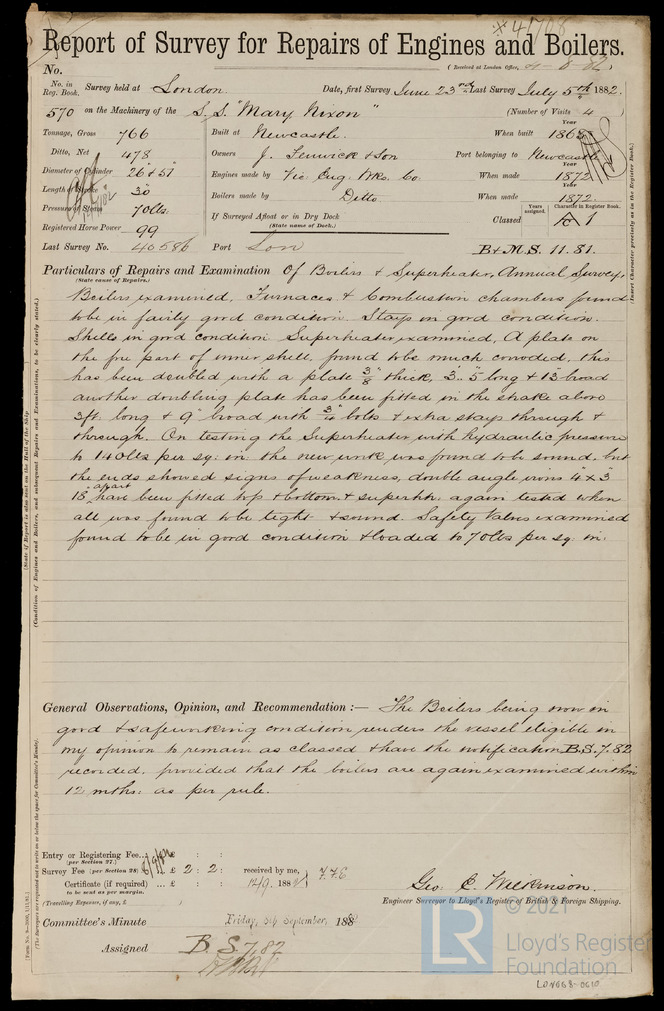 41708
Report of Survey for Repairs of Engines and Boilers.
No. (Received at London Office, 4-8-82)
No. in Reg. Book. Survey held at London Date, first Survey June 23rd Last Survey July 5th 1882.
570 on the Machinery of the S.S. "Mary Nixon" (Number of Visits 4)
Tonnage, Gross 766 Built at Newcastle. When built Year
Ditto, Net 478 Owners J. Fenwick & Son Port belonging to Newcastle
Diameter of Cylinder 26 & 51" Engines made by Vic. Eng. Wks. Co. When made Year 1872
Length of Stroke 30 Boilers made by Ditto When made Year 1872.
Pressure of Steam 70lbs. If Surveyed Afloat or in Dry Dock Classed Years assigned. Character in Register Book. A 1
Registered Horse Power 99 (State name of Dock.)
Last Survey No. 40586 Port Lon B&M.S. 11.81.
Particulars of Repairs and Examination Of Boilers & Superheater, Annual Survey.
(State cause of Repairs.)
Boilers examined, Furnaces & Combustion chambers found
to be in fairly good condition. Stays in good condition.
Shells in good condition Superheater examined, A plate on
the fore part of inner shell, found to be much corroded, this
has been doubled with a plate 3/8" thick, 3'.. 5" long & 13" broad
another doubling plate has been fitted in the strake above
3ft. long & 9" broad with 3/4" bolts & extra stays through &
through. On testing the Superheater with hydraulic pressure
to 140lbs per sq. in. the new work was found to be sound, but
the ends showed signs of weakness, double angle irons 4" x 3"
13" apart have been fitted top & bottom & superhtr. again tested when
all was found to be tight & sound. Safety Valves examined
found to be in good condition & loaded to 70lbs per sq. in.
General Observations, Opinion, and Recommendation :— The Boilers being now in
good & safe working condition renders the vessel eligible in
my opinion to remain as classed & have the notification B.S. 7.82
recorded, provided that the boilers are again examined within
12 mths: as per rule.
Entry or Registering Fee... £ : :
(per Section 27.)
Survey Fee (per Section 28) ... £ 2 : 2 : received by me,
Certificate (if required) ... £ : : 14/9. 1882
to be sent as per margin.
(Travelling Expenses, if any, £ )
Geo. C. Wilkinson.
Engineer Surveyor to Lloyd's Register of British & Foreign Shipping.
Committee's Minute Friday, 8th September, 1882
Assigned B.S. 7.82
© 2021
LR
Lloyd's Register
Foundation
LON068-0010
(State if Report is also sent on the Hull of the Ship
(Condition of Engines and Boilers, and subsequent Repairs and Examinations, to be clearly stated.)
(The Surveyors are requested not to write on or below the space for Committee's Minute.)
(Insert Character precisely as in the Register Book.)